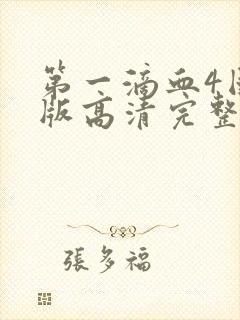 第一滴血4国
版高清完整
張多福